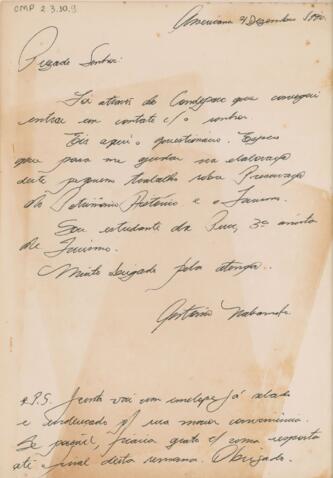 CMP 2.3.10.9
Americana 4 Dezembro
Prezado Senhor:
Foi através do Condepac que consegui
entrar em contato c/o senhor.
Eis aqui o questionário. Espero
que para me ajudar na elaboração
deste pequeno trabalho sobre Preservação
do Patrimônio Histórico e o Turismo.
Sou estudante da Puc, 3º anista
de Turismo.
Muito obrigado pela atenção..
P.S. Junto vai um envelope já selado
e endereçado p/ sua maior conveniência.
Se possível, ficaria grato c/ uma resposta
até o final desta semana. Obrigado.